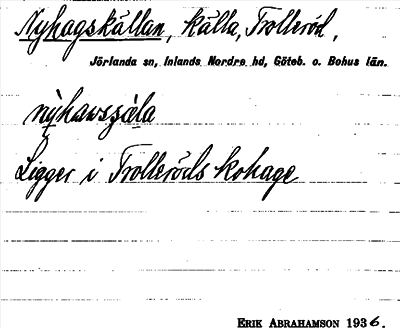 Nyhagskällan, källa, Trolleröd,
Jörlanda sn, Inlands Nordre hd, Göteb. o. Bohus län.
Ligger i Trolleröds kohage
ERIK ABRAHAMSON 1936.